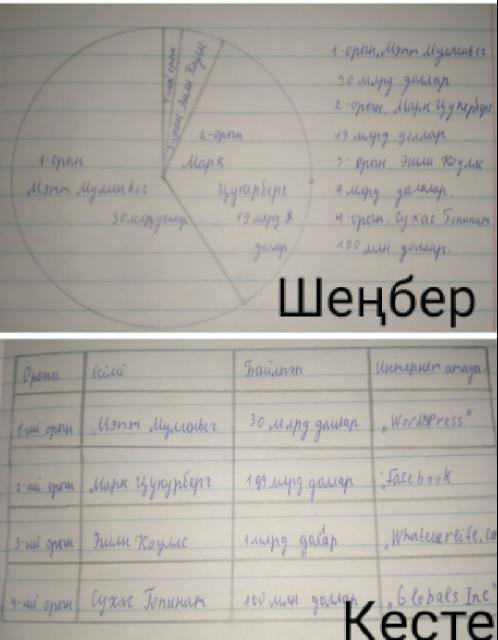 1-орын. Мэтт Мулинвег
30 млрд доллар
2-орын. Марк Цукерберг
19 млрд доллар
3-орын. Эшли Коуллс
1 млрд доллар.
4-орын. Сухас Гопинат
100 млн доллар.
4-ші орын
3-орын Эшли Коуллс
2-орын
Марк
Цукерберг
19 млрд
долар
1-орын
Мэтт Мулинвег
30 млрд доллар
Шеңбер
Орны Есімі Байлығы Интернет атауы
1-ші орын Мэтт Мулинвег 30 млрд доллар „WordPress"
2-ші орын Марк Цукурберг 19 млрд доллар "facebook
3-ші орын Эшли Коуллс 1 млрд долар „Whateverlife.co
4-ші орын Сухас Гопинат 100 млн доллар „Globals Inc"
Кесте